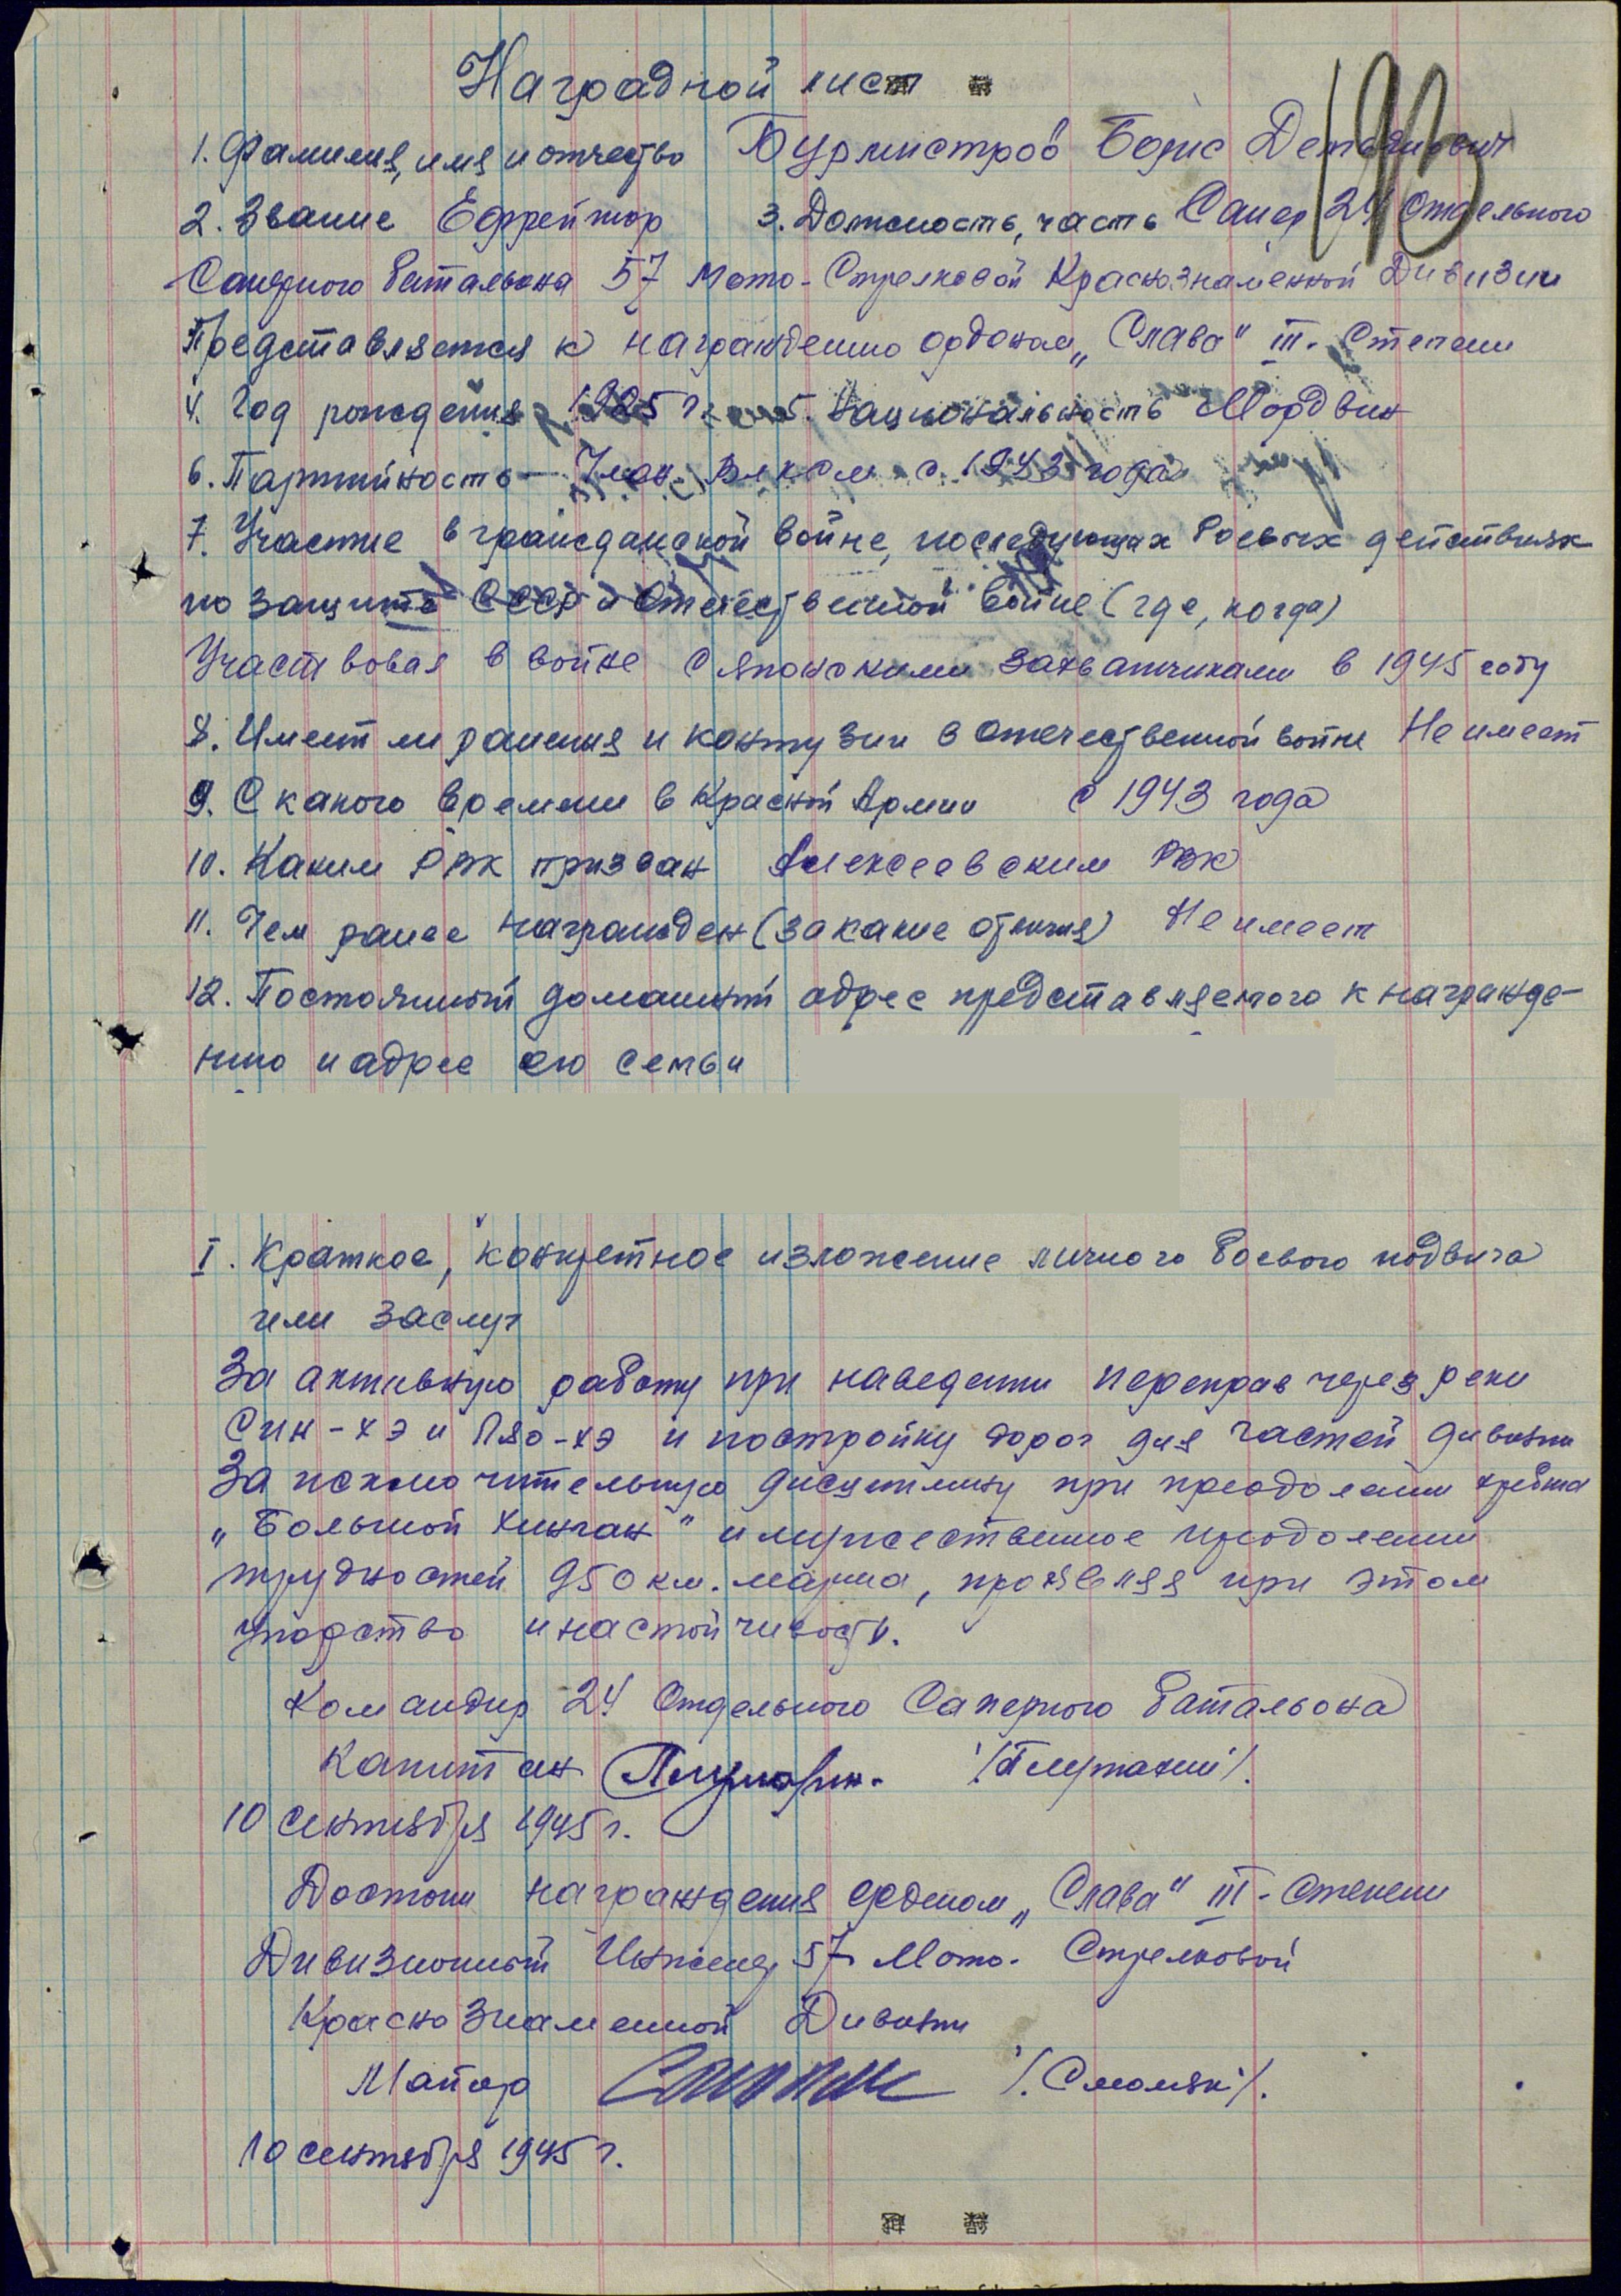 Наградной лист
193
1. Фамилия, имя и отчество Бурмистров Борис
2. Звание Ефрейтор 3. Должность, часть Сапер 24 Отдельного
Саперного батальона 57 Мото-Стрелковой Краснознаменной Дивизии
Представляется к награждению орденом „Слава" III. Степени
4. Год рождения 1925 г. 5. Национальность Мордвин
6. Партийность — Член ВЛКСМ с 1943 года
7. Участие в гражданской войне, последующих боевых действиях
по защите СССР и отечественной войне (где, когда)
Участвовал в войне с японскими захватчиками в 1945 году
8. Имеет ли ранения и контузии в отечественной войне Не имеет
9. С какого времени в Красной Армии с 1943 года
10. Каким РВК призван Алексеевским РВК
11. Чем ранее награжден (за какие отличия) Не имеет
12. Постоянный домашний адрес представляемого к награжде-
нию и адрес его семьи
I. Краткое, конкретное изложение личного боевого подвига
или заслуг
За активную работу при наведении переправ через реки
Син-хэ и Ляо-хэ и постройку дорог для частей дивизии
За исключительную дисциплину при преодолении хребта
„Большой Хинган" и мужественное преодоление
трудностей 950 км. марша, проявляя при этом
упорство и настойчивость.
Командир 24 Отдельного Саперного батальона
Капитан
10 сентября 1945 г.
Достоин награждения орденом „Слава" III-степени
Дивизионный Инженер 57 Мото-Стрелковой
Краснознаменной Дивизии
Майор /Смоляк/.
10 сентября 1945 г.